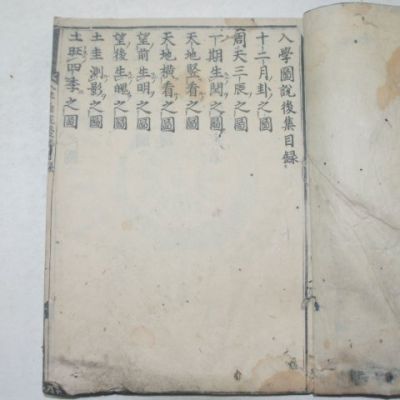 入學圖說後集目錄
十二月卦之圖
周天三辰之圖
一期生閏之圖
天地竪看之圖
天地橫看之圖
望前生明之圖
望後生魄之圖
土圭測影之圖
土旺四季之圖